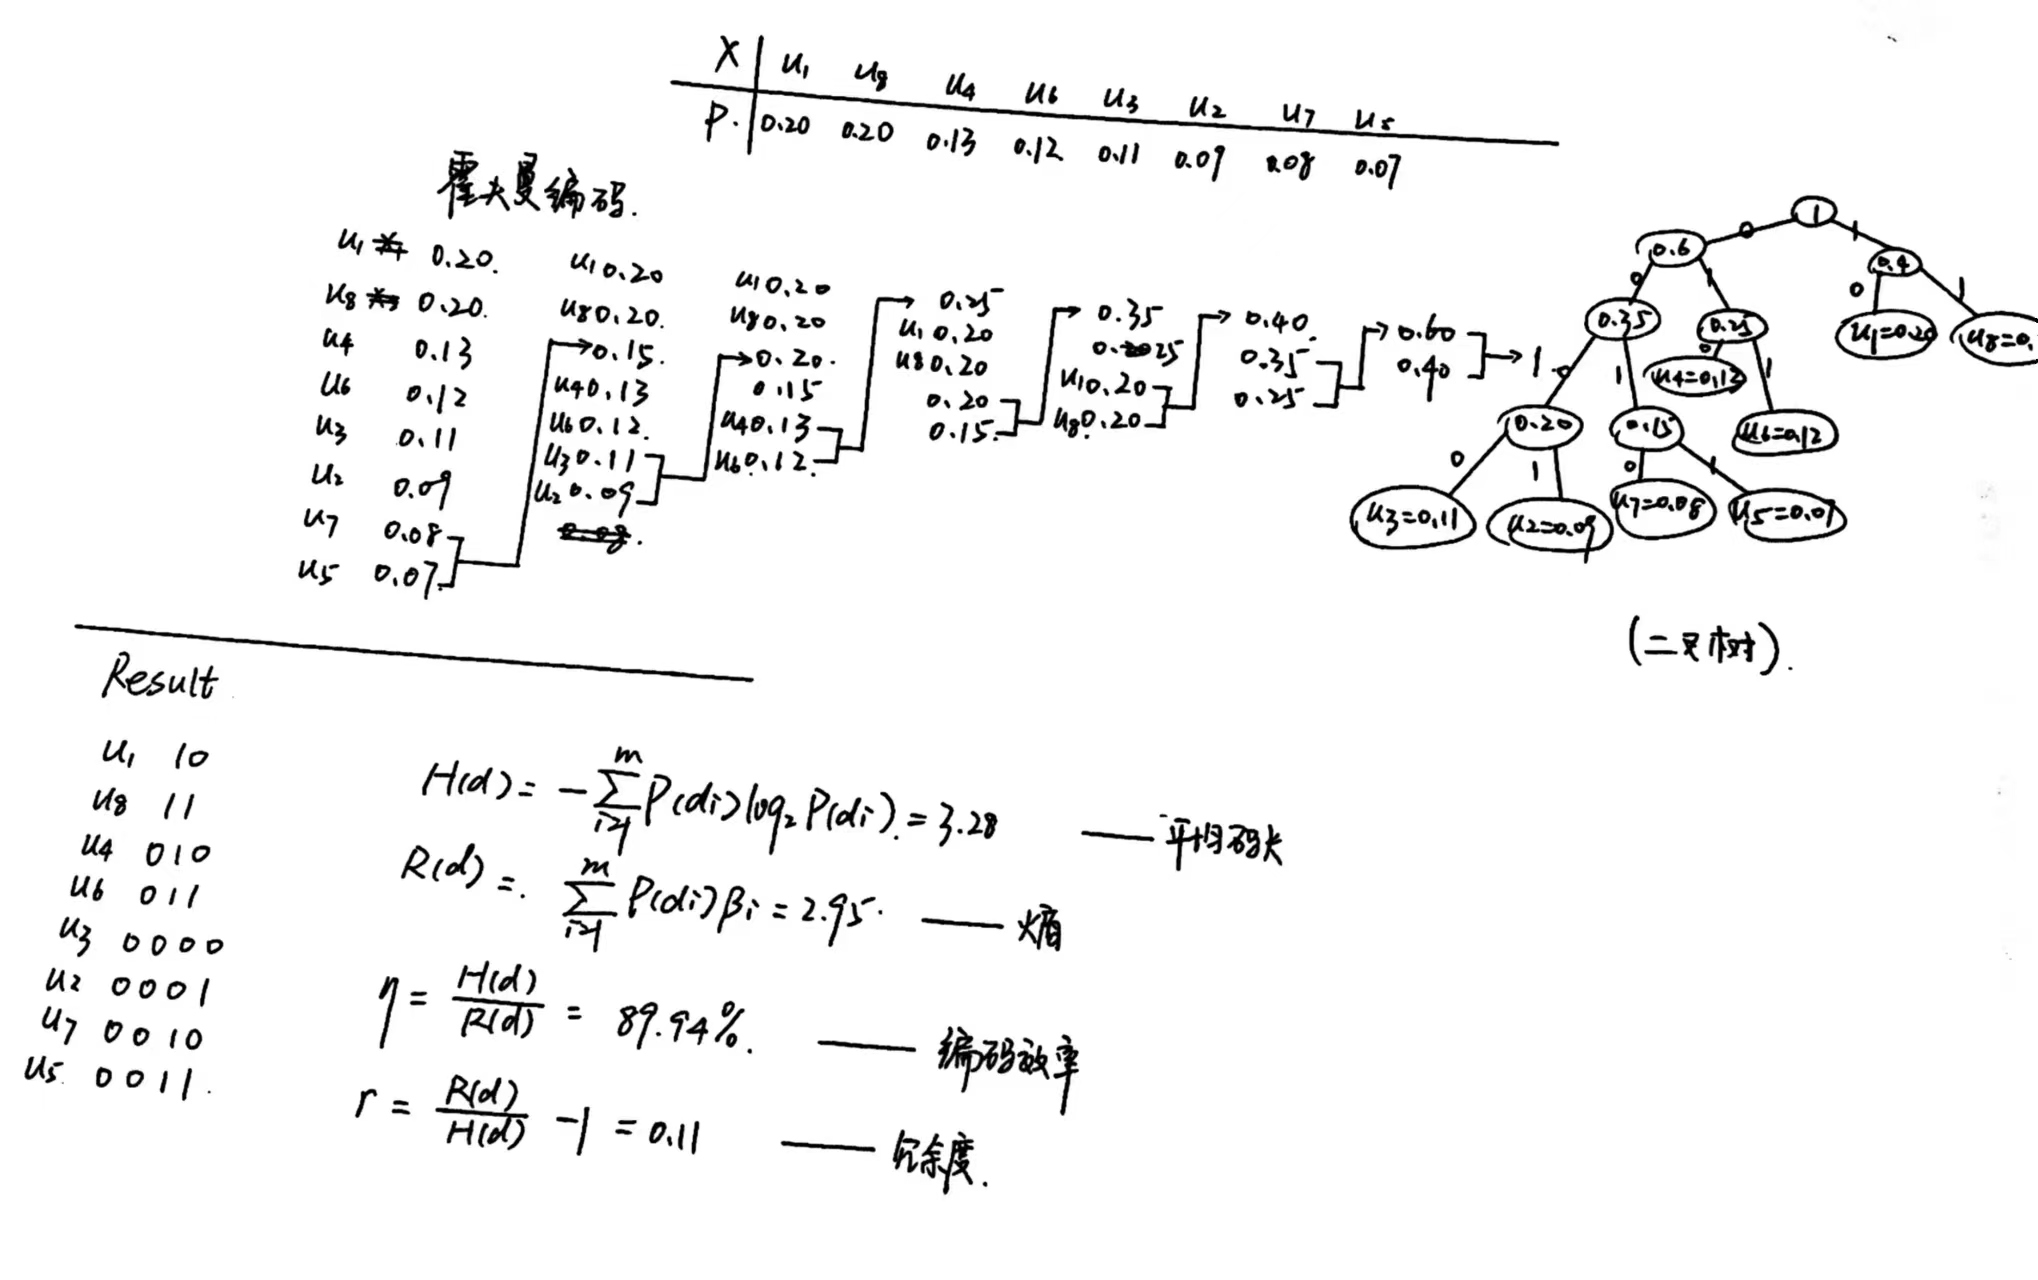 X u₁ u₈ u₄ u₆ u₃ u₂ u₇ u₅
P. 0.20 0.20 0.13 0.12 0.11 0.09 0.08 0.07
霍夫曼编码.
u₁ 0.20.
u₈ 0.20.
u₄ 0.13
u₆ 0.12
u₃ 0.11
u₂ 0.09
u₇ 0.08
u₅ 0.07
u₁ 0.20
u₈ 0.20.
0.15.
u₄ 0.13
u₆ 0.12.
u₃ 0.11
u₂ 0.09
0.08.
u₁ 0.20
u₈ 0.20
0.20.
0.15
u₄ 0.13
u₆ 0.12.
0.25
u₁ 0.20
u₈ 0.20
0.20
0.15.
0.35
0.25
u₁ 0.20
u₈ 0.20
0.40.
0.35
0.25
0.60
0.40
1.
1
0 1
0.6 0.4
0 1 0 1
0.35 0.25 u₁=0.20 u₈=0.
0 1 0 1
u₄=0.12
0.20 0.15 u₆=0.12
0 1 0 1
u₃=0.11 u₂=0.09 u₇=0.08 u₅=0.07
(二叉树).
Result
u₁ 10
u₈ 11
u₄ 010
u₆ 011
u₃ 0000
u₂ 0001
u₇ 0010
u₅ 0011.
H(d) = -∑_{i=1}^{m} P(di) log₂ P(di). = 3.28 —— 平均码长
R(d) =. ∑_{i=1}^{m} P(di) βi = 2.95. —— 熵
η = H(d)/R(d) = 89.94%. —— 编码效率
r = R(d)/H(d) -1 = 0.11 —— 冗余度.